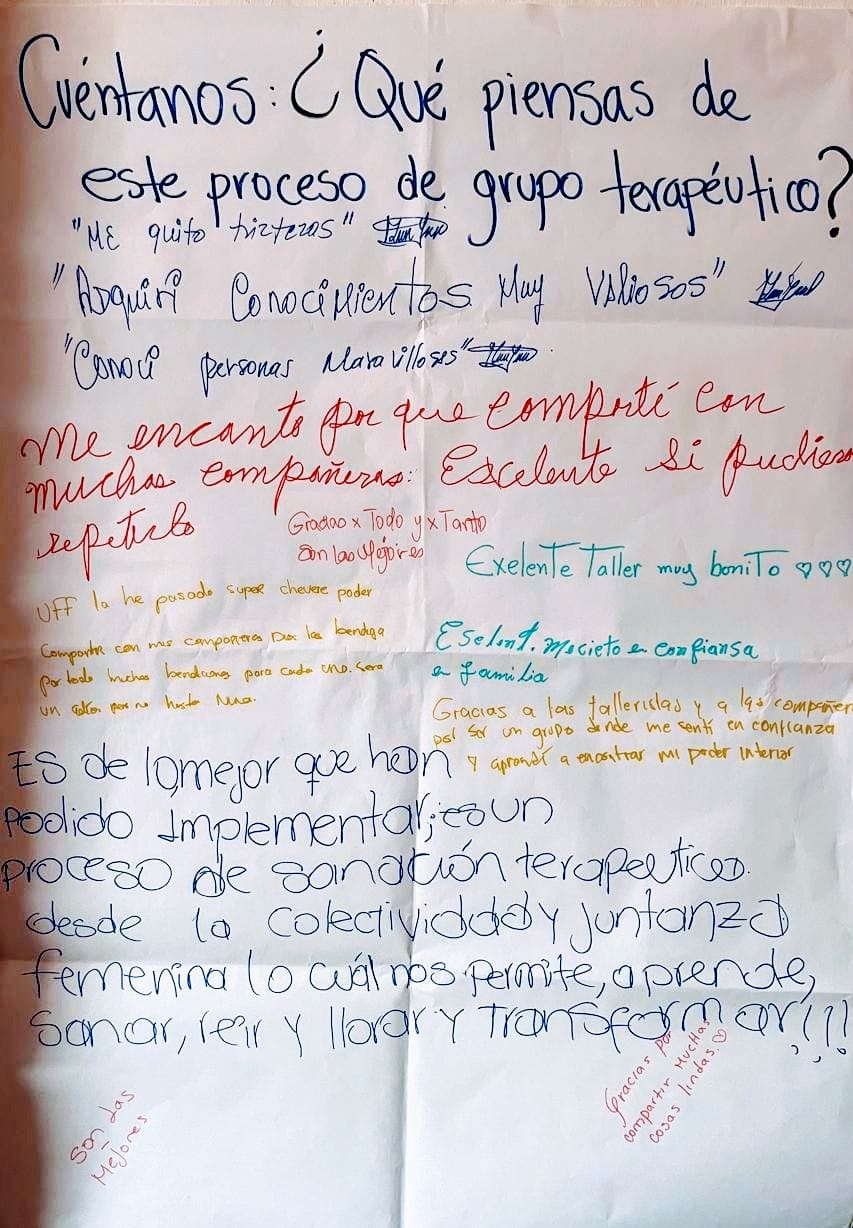 Cuéntanos: ¿Qué piensas de
este proceso de grupo terapéutico?
"ME quito triztezas"
"Adquirí Conocimientos Muy Valiosos"
"Conocí personas Maravillosas"
Me encanto por que comparté con
muchas compañeras: Excelente si pudiera
repetirlo
Gracias x Todo y x Tanto
Son las Mejores
Exelente Taller muy bonito ♡♡♡
UFF la he pasado super chevere poder
Compartir con mis compañeras Dios las bendiga
por todo muchas bendiciones para cada uno. sera
un hasta
Eselent. Mecieto en confiansa
en familia
Gracias a las talleristas y a las compañer
por ser un grupo donde me sentí en confianza
y aprendí a encontrar mi poder interior
ES de lo mejor que han
podido implementar; es un
proceso de sanación terapeutico.
desde la colectividad y juntanza
femenina lo cuál nos permite, aprende,
sanar, reir y llorar y transformar!!!
Gracias por
compartir Muchas
cosas lindas.♡
Son Las
Mejores